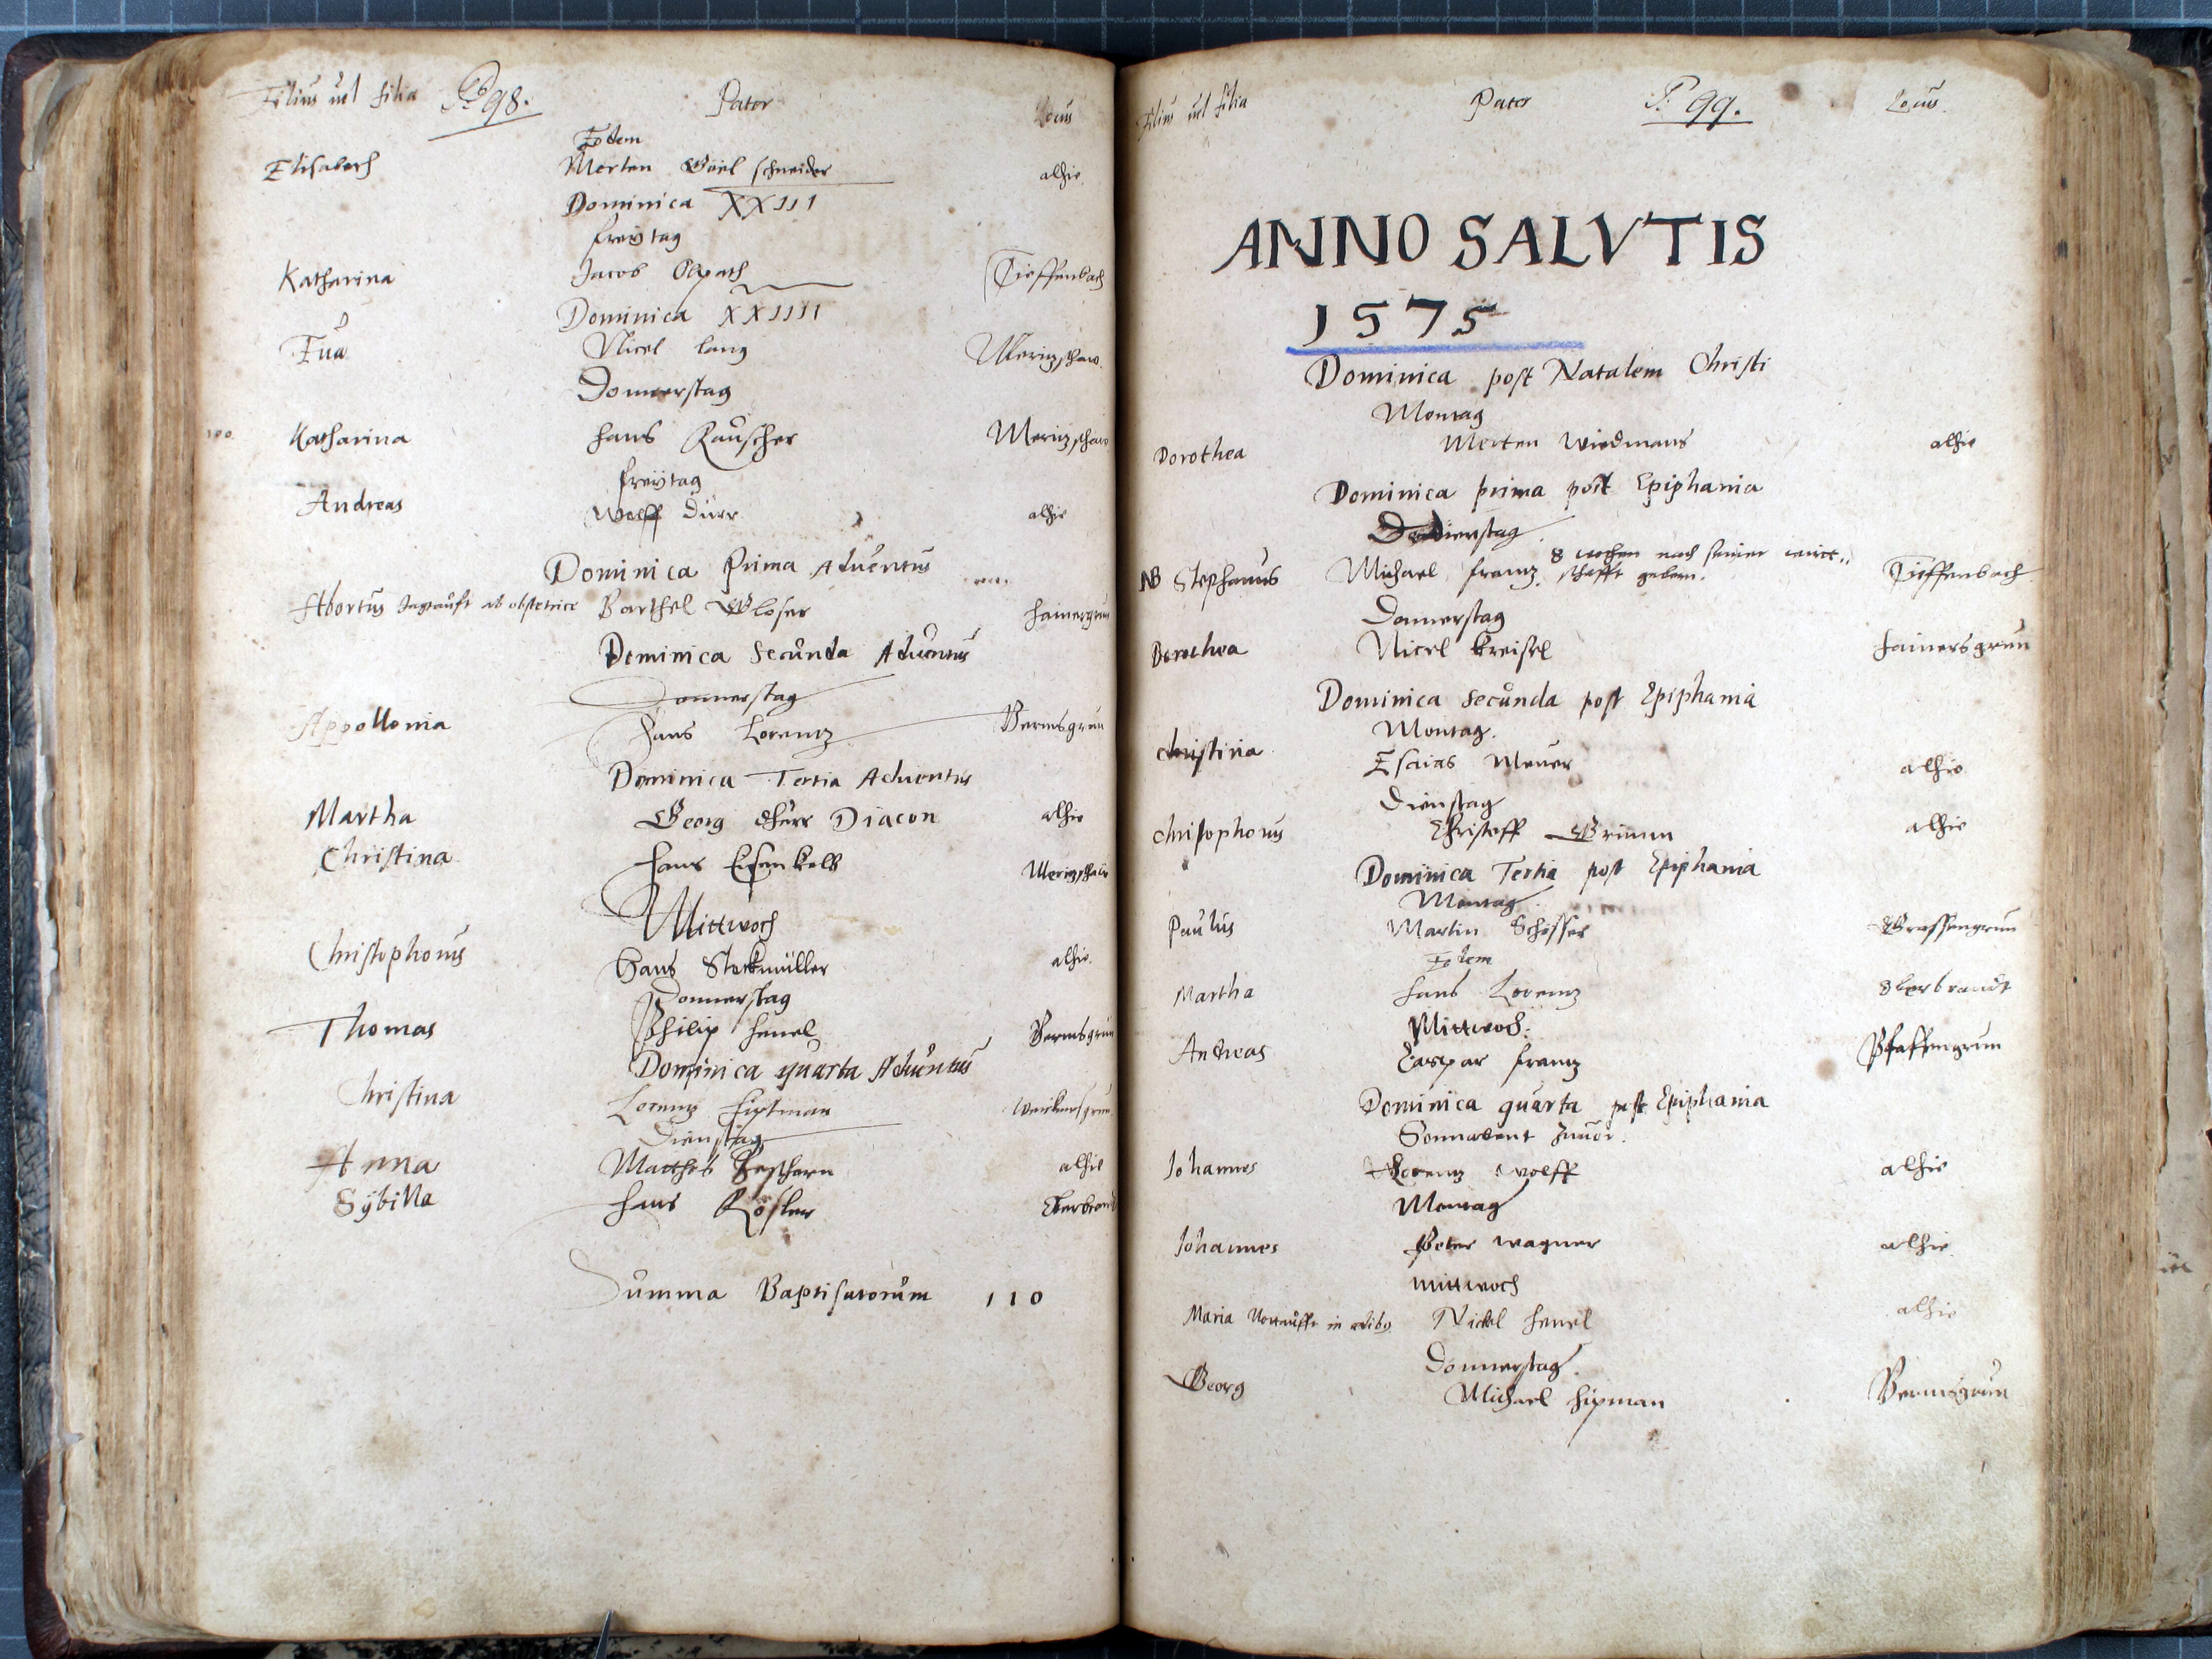 Filius vel filia P. 98. Pater Locus
Eodem
Elisabeth Merten schneider alhie
Dominica XXIII
freytag
Katharina Jacob Tieffenbach
Dominica XXIIII
Eua Nicel lang
Donnerstag
100. Katharina Hans Rauscher
freytag
Andreas Wolff Dürr alhie
Dominica Prima Aduentus
Abortus Jagtaufft ab obstetrice Barthel Gloser
Dominica Secunda Aduentus
Donnerstag
Appollonia Hans Lorentz Bermsgrun
Dominica Tertia Aduentus
Martha Georg Diacon alhie
Christina Hans
Mittwoch
Christophorus Hans Steckmüller alhie.
Donnerstag
Thomas Philip Henel Bermsgrun
Dominica quarta Aduentus
Christina Lorentz
Dienstag
Anna Matthes alhie
Sÿbilla Hans Rösler
Summa Baptisatorum 110
Filius vel filia Pater P. 99. Locus
ANNO SALVTIS
1575
Dominica post Natalem Christi
Montag
Dorothea Merten Wiedmans alhie
Dominica prima post Epiphania
Dienstag
8 wochen nach seiner wirt..
NB Stephanus Michael frantz. schafft geborn. Tieffenbach
Donnerstag
Dorothea Nicel Kreisel Hainersgrun
Dominica Secunda post Epiphania
Montag.
Christina Esaias Meuer alhie
Dienstag
Christophorus Christoff Grimm alhie
Dominica Tertia post Epiphania
Montag
Paulus Martin Schösser
Eodem
Martha Hans Lorentz
Mittwoch.
Andreas Caspar frantz Pfaffengrun
Dominica quarta post Epiphania
Sonnabent Zuuor.
Johannes Lorentz Wolff alhie
Montag
Johannes Peter Wagner alhie
Mittwoch
Maria in Nickel Henel alhie
Donnerstag.
Georg Michael Hipman Bermsgrun